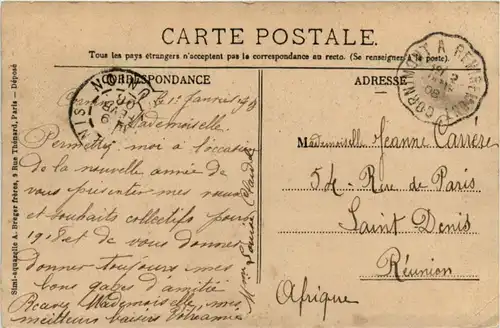 CARTE POSTALE.
Tous les pays étrangers n'acceptent pas la correspondance au recto. (Se renseigner à la poste).
CORRESPONDANCE
ADRESSE
CORNIMONT A REMIREMONT
le 1er Janvier
Mademoiselle
Permettez moi à l'occasion
de la nouvelle année de
vous présenter mes
et souhaits collectifs pour
1908 et de vous donner
donner toujours mes
bons gages d'amitié
Recevez Mademoiselle, mes
meilleurs baisers
Mademoiselle Jeanne Carrère
54 - Rue de Paris
Saint Denis
Réunion
Afrique
Simi-aquarelle A. Breger frères, 9 Rue Thénard, Paris — Déposé